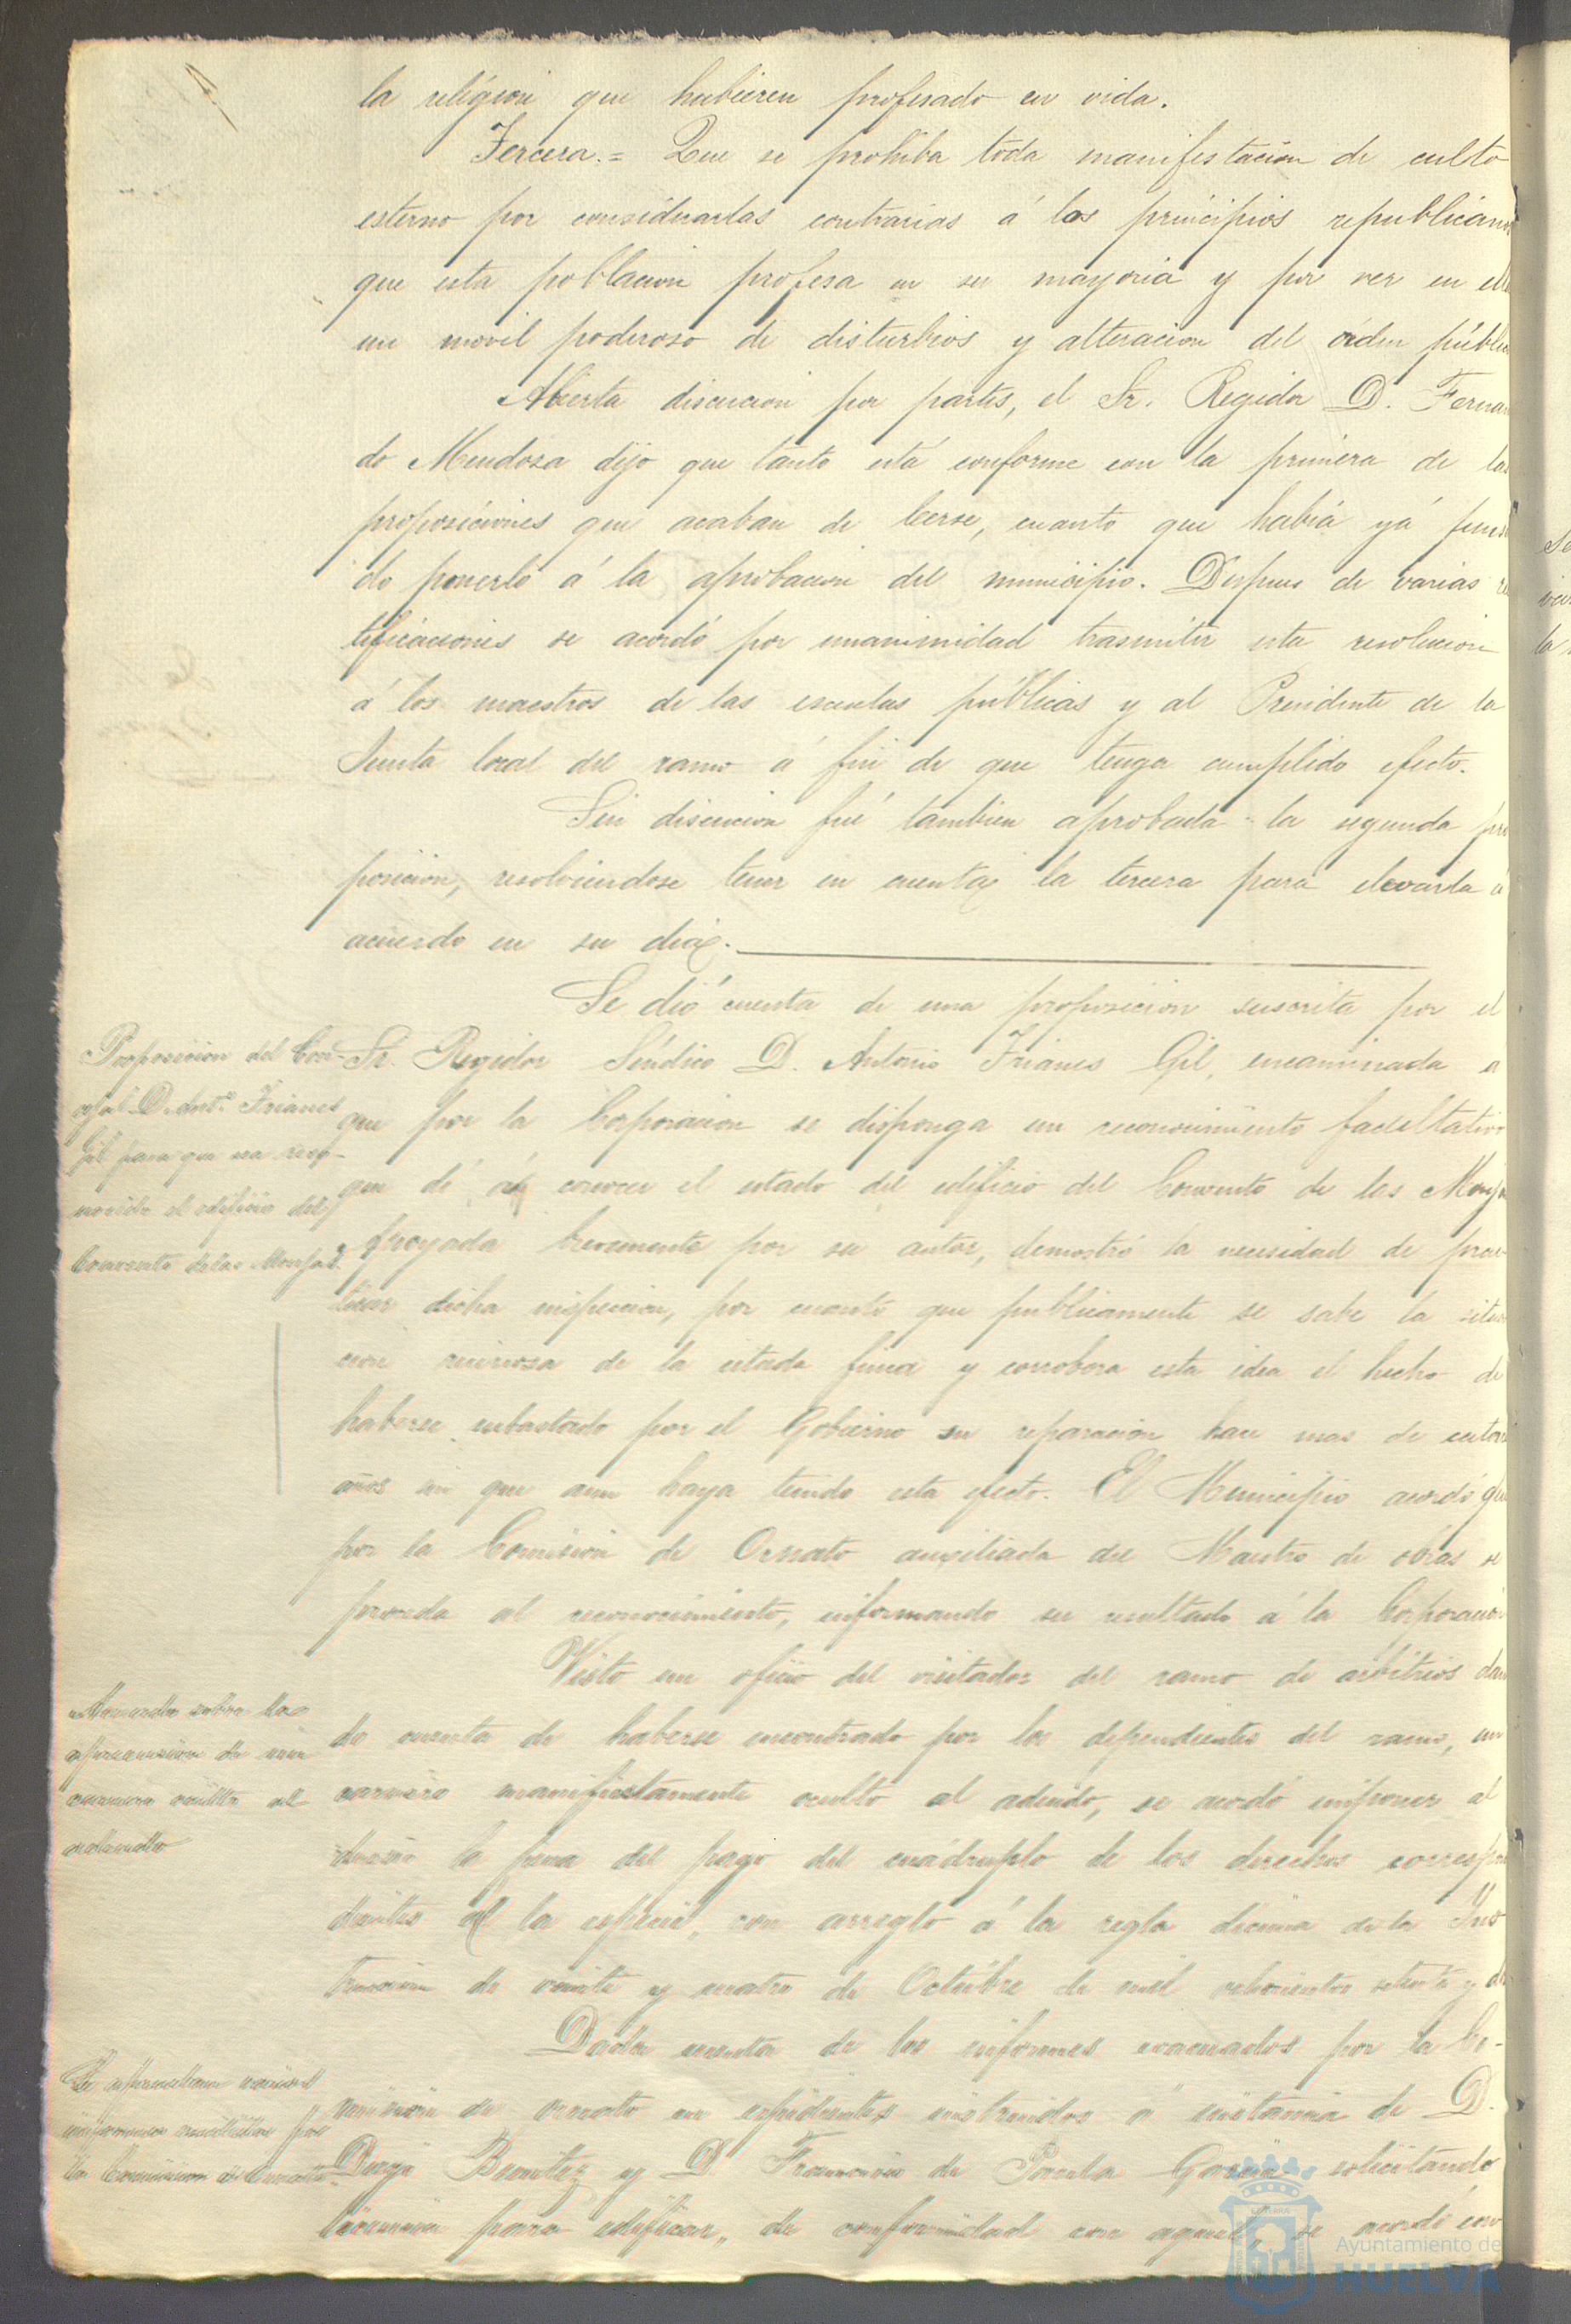 la religion que hubieren profesado en vida.
Tercera.= Que se prohiba toda manifestacion de culto
esterno por considerarlas contrarias á los principios republicanos
que esta poblacion profesa en su mayoria y por ver en ell
un movil poderoso de disturbios y alteracion del orden públic
Abierta discucion por partes, el Sr. Regidor D. Fernan
do Mendoza dijo que tanto está conforme con la primera de las
proposiciones que acaban de leerse, cuanto que habia yá pensa
do ponerlo á la aprobacion del municipio. Despues de varias re
tificaciones se acordó por unanimidad trasmitir esta resolucion
á los maestros de las escuelas públicas y al Presidente de la
Junta local del ramo á fin de que tenga cumplido efecto.
Sin discucion fué tambien aprobada la segunda pro
posicion, resolviendose tener en cuenta la tercera para elevarla á
acuerdo en su dia.
Se dió cuenta de una proposicion suscrita por el
Sr. Regidor Síndico D. Antonio Trianes Gil, encaminada a
que por la Corporacion se disponga un reconocimiento facultativo
que dé á conocer el estado del edificio del Convento de las Monjas
Apoyada brevemente por su autor, demostró la necesidad de prac
ticar dicha inspeccion, por cuanto que publicamente se sabe la situa
cion ruinosa de la citada finca y corrobora esta idea el hecho de
haberse subastado por el Gobierno su reparacion hace mas de
años sin que aun haya tenido esta efecto. El Municipio acordó que
por la Comision de Ornato auxiliada del Maestro de obras se
proceda al reconocimiento, informando su resultado á la Corporacion
Proposicion del Con-
cejal D. Antº Trianes
Gil para que sea reco-
nocido el edificio del
Convento de las Monjas.
Visto un oficio del visitador del ramo de arbitrios dan
do cuenta de haberse encontrado por los dependientes del ramo, un
carnero manifiestamente oculto al adeudo, se acordó imponer al
dueño la pena del pago del cuádruplo de los derechos correspon
dientes á la especie, con arreglo á la regla décima de la Ins
truccion de veinte y cuatro de Octubre de mil ochocientos setenta y
Acuerdo sobre la
aprencion de un
carnero oculto al
adeudo
Dada cuenta de los informes evacuados por la Co-
mision de ornato en espedientes instruidos á instancia de D.
Diego Benitez y D. Francisco de Paula Garcia solicitando
licencia para edificar, de conformidad con aquel, se acordó con
Se aprueban varios
informes emitidos por
la Comision de Ornato.
Ayuntamiento de
HUELVA